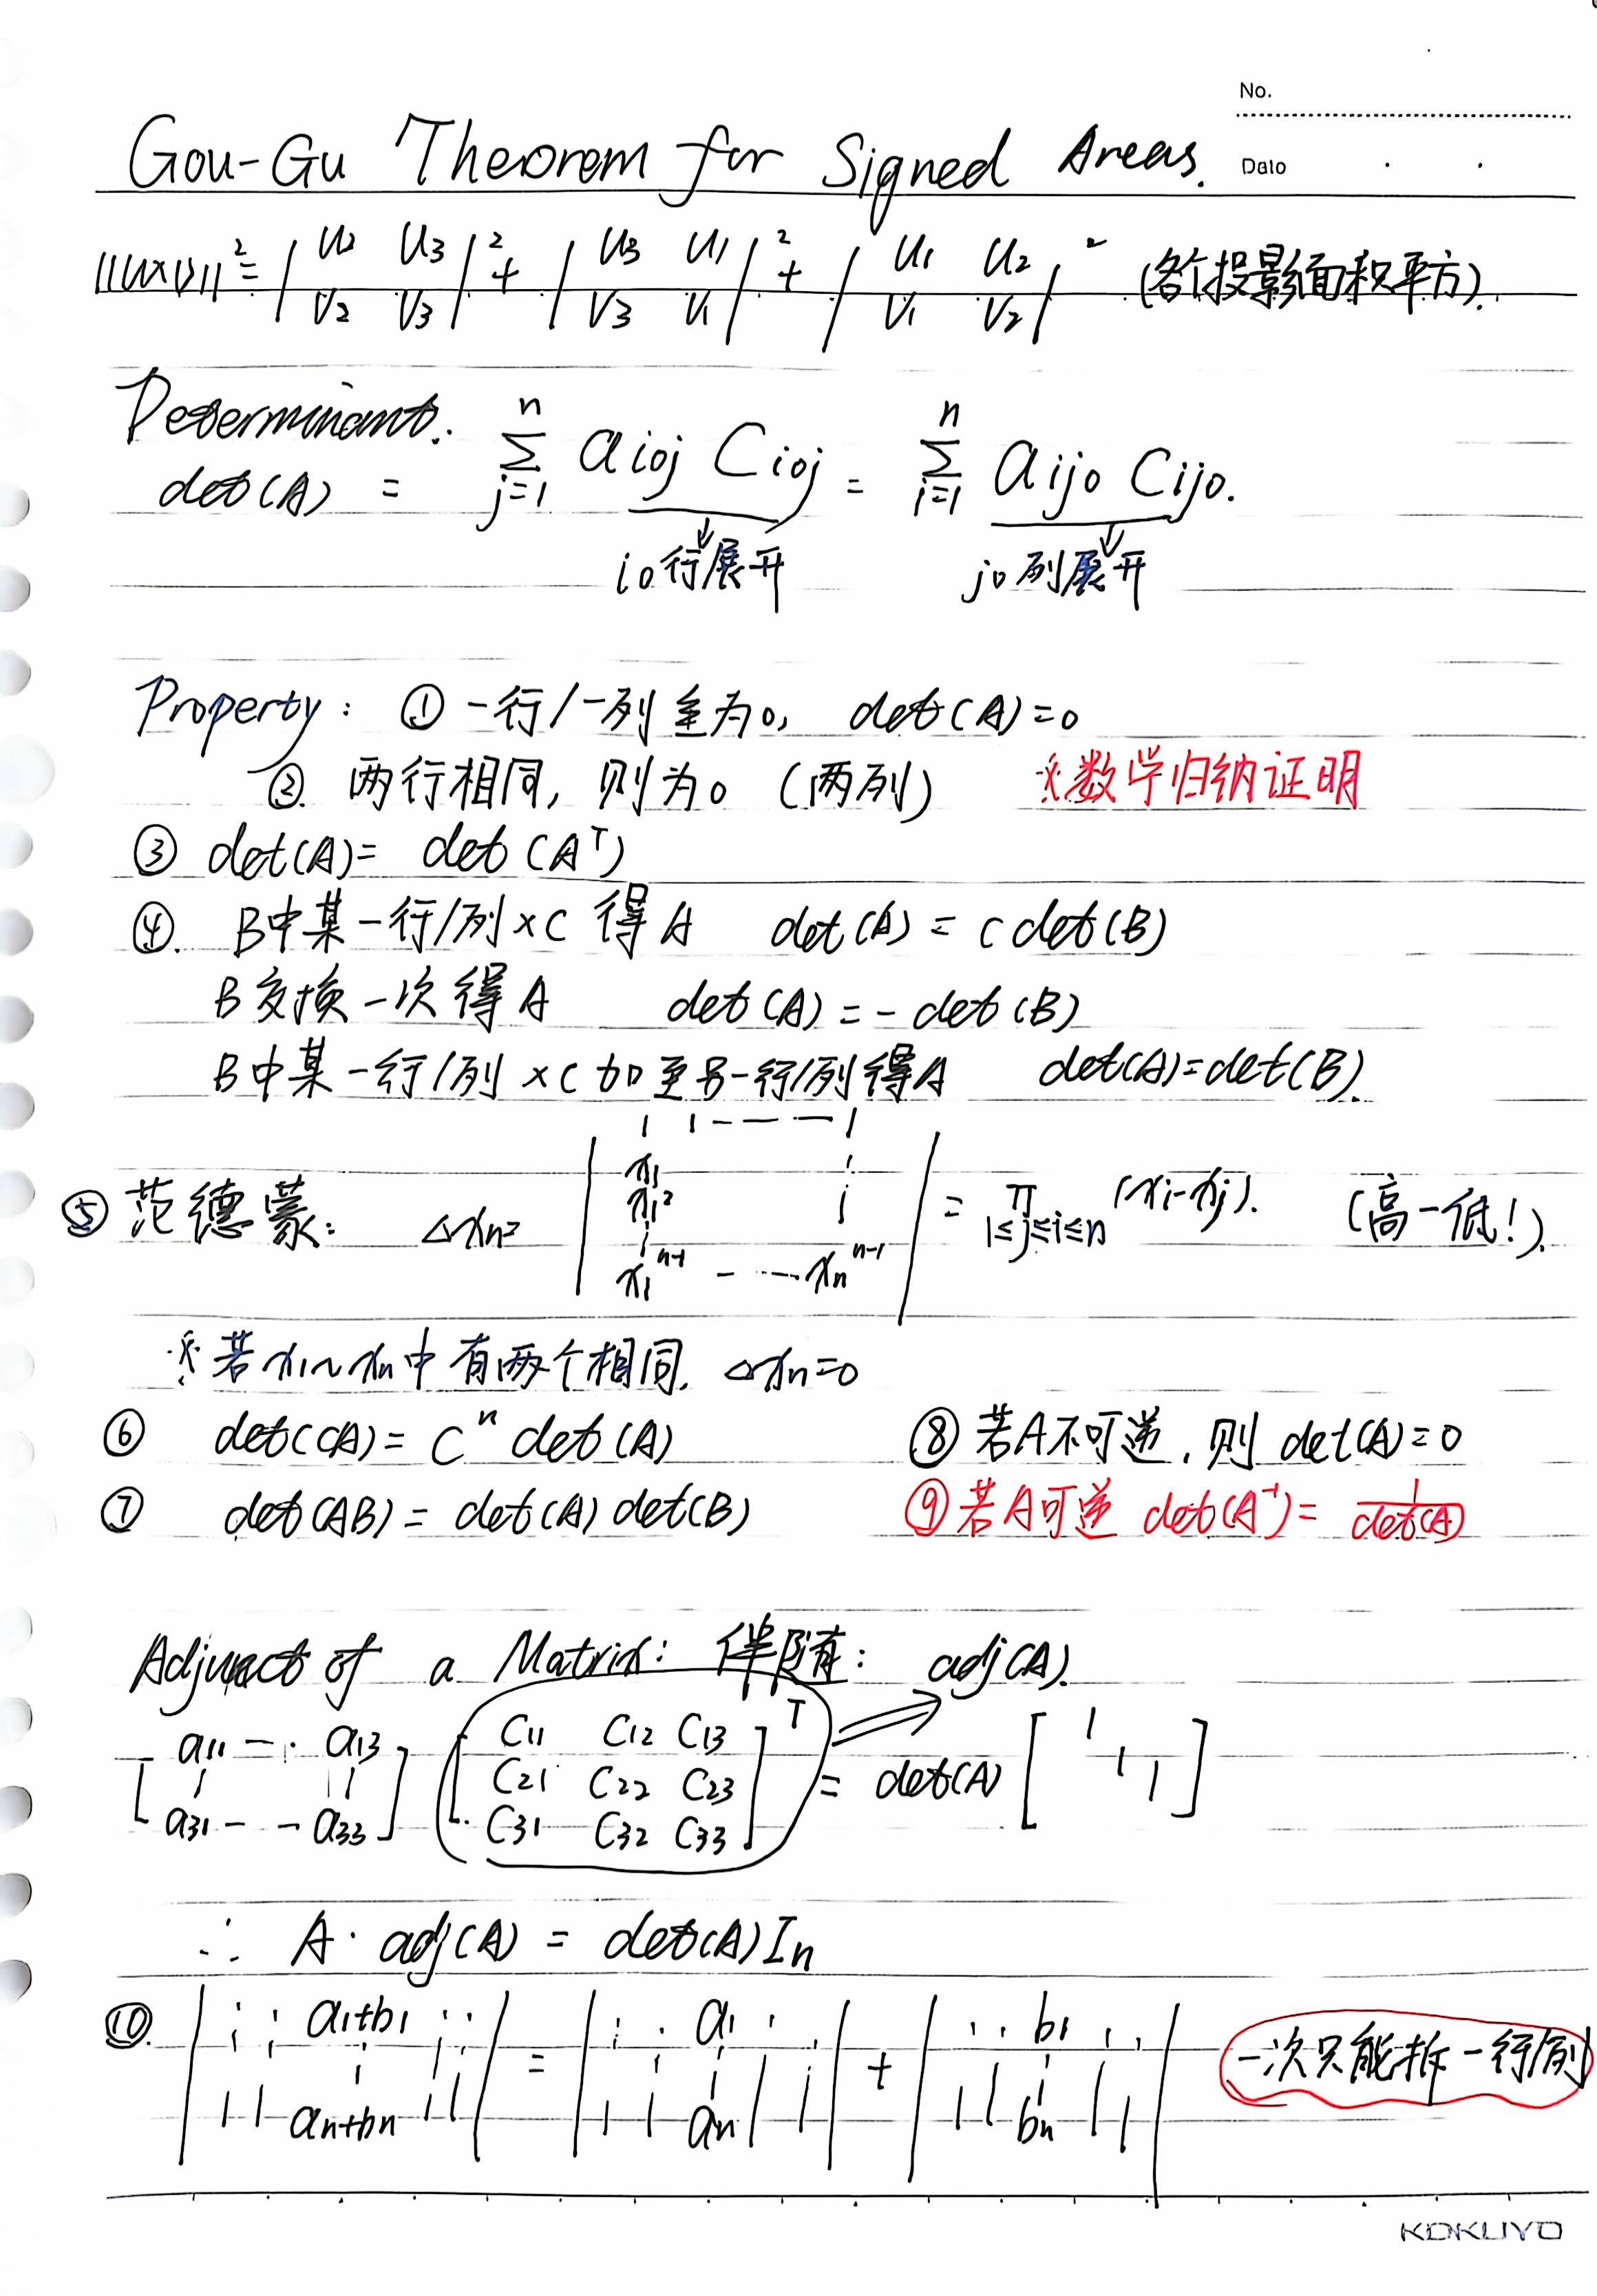 No.
Gou-Gu Theorem for Signed Areas. Date
||u×v||² = |u₂ u₃; v₂ v₃|² + |u₃ u₁; v₃ v₁|² + |u₁ u₂; v₁ v₂|² (各个投影面积平方).
Determinants.
det(A) = Σ_{j=1}^{n} a_{i0j} C_{i0j} = Σ_{i=1}^{n} a_{ij0} C_{ij0}.
i0行展开 j0列展开
Property: ① 一行/一列全为0, det(A)=0
②. 两行相同, 则为0 (两列) ※数学归纳证明
③ det(A) = det(Aᵀ)
④. B中某一行/列×C 得A det(A) = c det(B)
B交换一次得A det(A) = - det(B)
B中某一行/列×C加至另一行/列得A det(A)=det(B).
⑤ 范德蒙: △xn= |1 1 ---- 1; x₁ ⋮; x₁² ⋮; ⋮; x₁ⁿ⁻¹ - --- xₙⁿ⁻¹| = Π_{1≤j≤i≤n} (xi-xj). (高-低!).
※若x1~xn中有两个相同. △xn=0
⑥ det(cA) = cⁿ det(A) ⑧若A不可逆, 则det(A)=0
⑦ det(AB) = det(A) det(B) ⑨若A可逆 det(A⁻¹) = 1/det(A)
Adjunct of a Matrix: 伴随: adj(A).
[a₁₁ -- a₁₃; ⋮ ⋮; a₃₁ -- a₃₃] [C₁₁ C₁₂ C₁₃; C₂₁ C₂₂ C₂₃; C₃₁ C₃₂ C₃₃]ᵀ ⇒ = det(A) [1 1 1]
∴ A·adj(A) = det(A)In
⑩. |⋮ ⋮ a₁+b₁ ⋮ ⋮; ⋮; an+bn| = |⋮ ⋮ a₁ ⋮ ⋮; ⋮; an| + |⋮ ⋮ b₁ ⋮ ⋮; ⋮; bn| 一次只能拆一行/列
KOKUYO